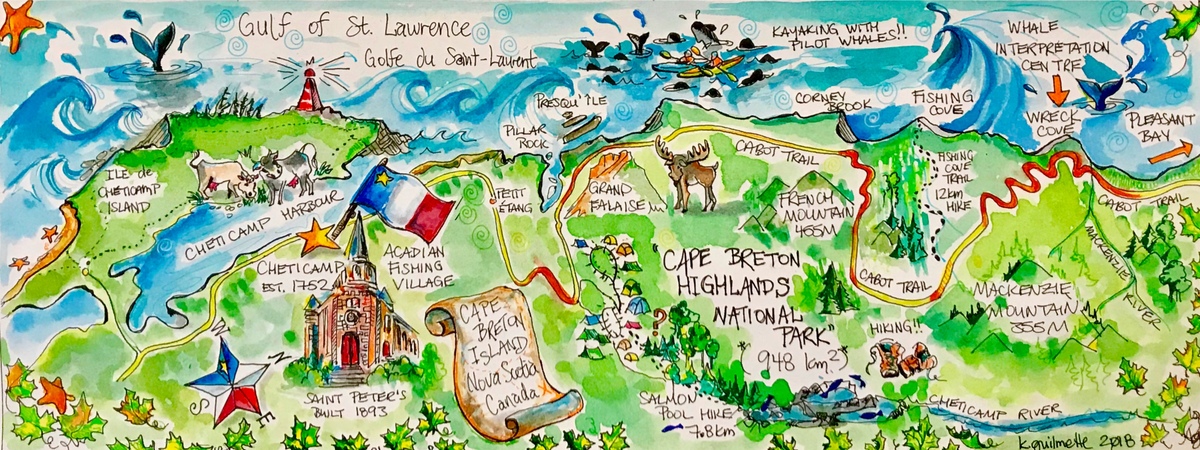 Gulf of St. Lawrence
Golfe du Saint-Laurent
KAYAKING WITH
PILOT WHALES!!
WHALE
INTERPRETATION
CENTRE
WRECK
COVE
PLEASANT
BAY
PRESQU'ILE
PILLAR
ROCK
CORNEY
BROOK
FISHING
COVE
ILE de
CHETICAMP
ISLAND
CHETICAMP HARBOUR
PETIT
ETANG
GRAND
FALAISE
CABOT TRAIL
FRENCH
MOUNTAIN
455M
FISHING
COVE
TRAIL
12km
HIKE
CABOT TRAIL
CHETICAMP
EST. 1752
ACADIAN
FISHING
VILLAGE
CAPE BRETON
HIGHLANDS
NATIONAL
PARK"
948 km²
CABOT TRAIL
MACKENZIE
MOUNTAIN
355M
MACKENZIE
RIVER
N
W
S
E
SAINT PETER'S
BUILT 1893
CAPE
BRETON
ISLAND
Nova Scotia
Canada
?
HIKING!!
SALMON
POOL HIKE
7.8km
CHETICAMP RIVER
K. Guilmette 2018